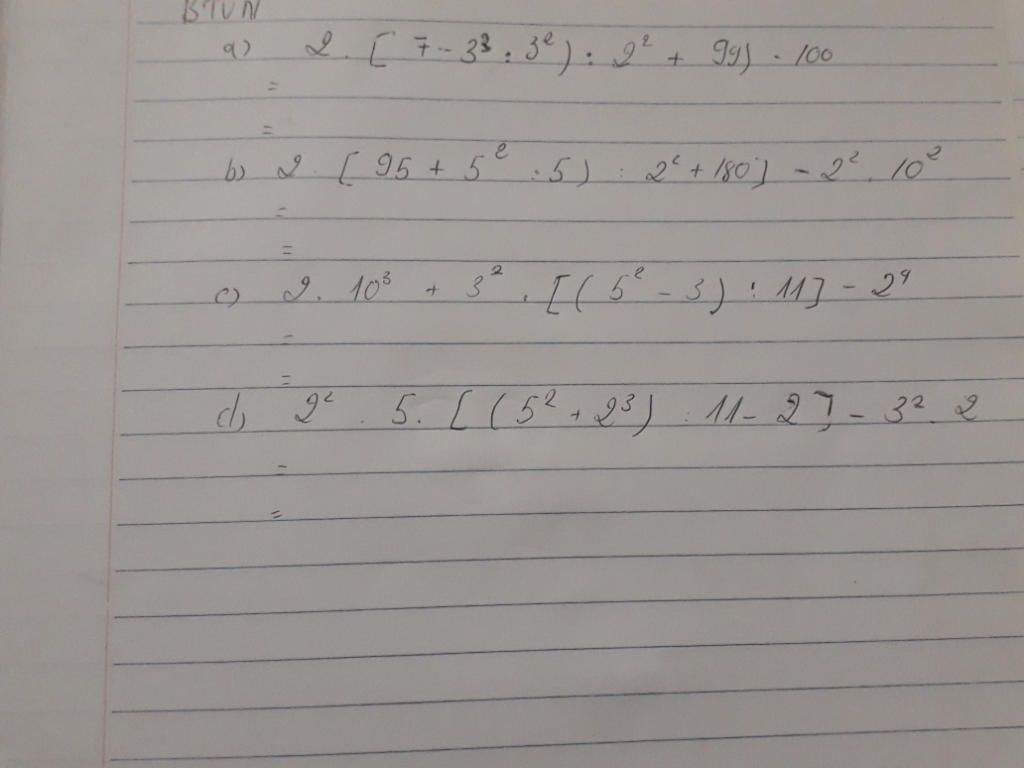 BTVN
a) 2 . [ 7 - 3³ : 3² ) : 2² + 99) - 100
=
=
b) 2 . [ 95 + 5² : 5 ) : 2² + 180 ] - 2² . 10²
=
=
c) 2 . 10³ + 3² . [ ( 5² - 3 ) : 11 ] - 2⁴
=
=
d) 2² . 5 . [ ( 5² + 2³ ) : 11 - 2 ] - 3² . 2
=
=